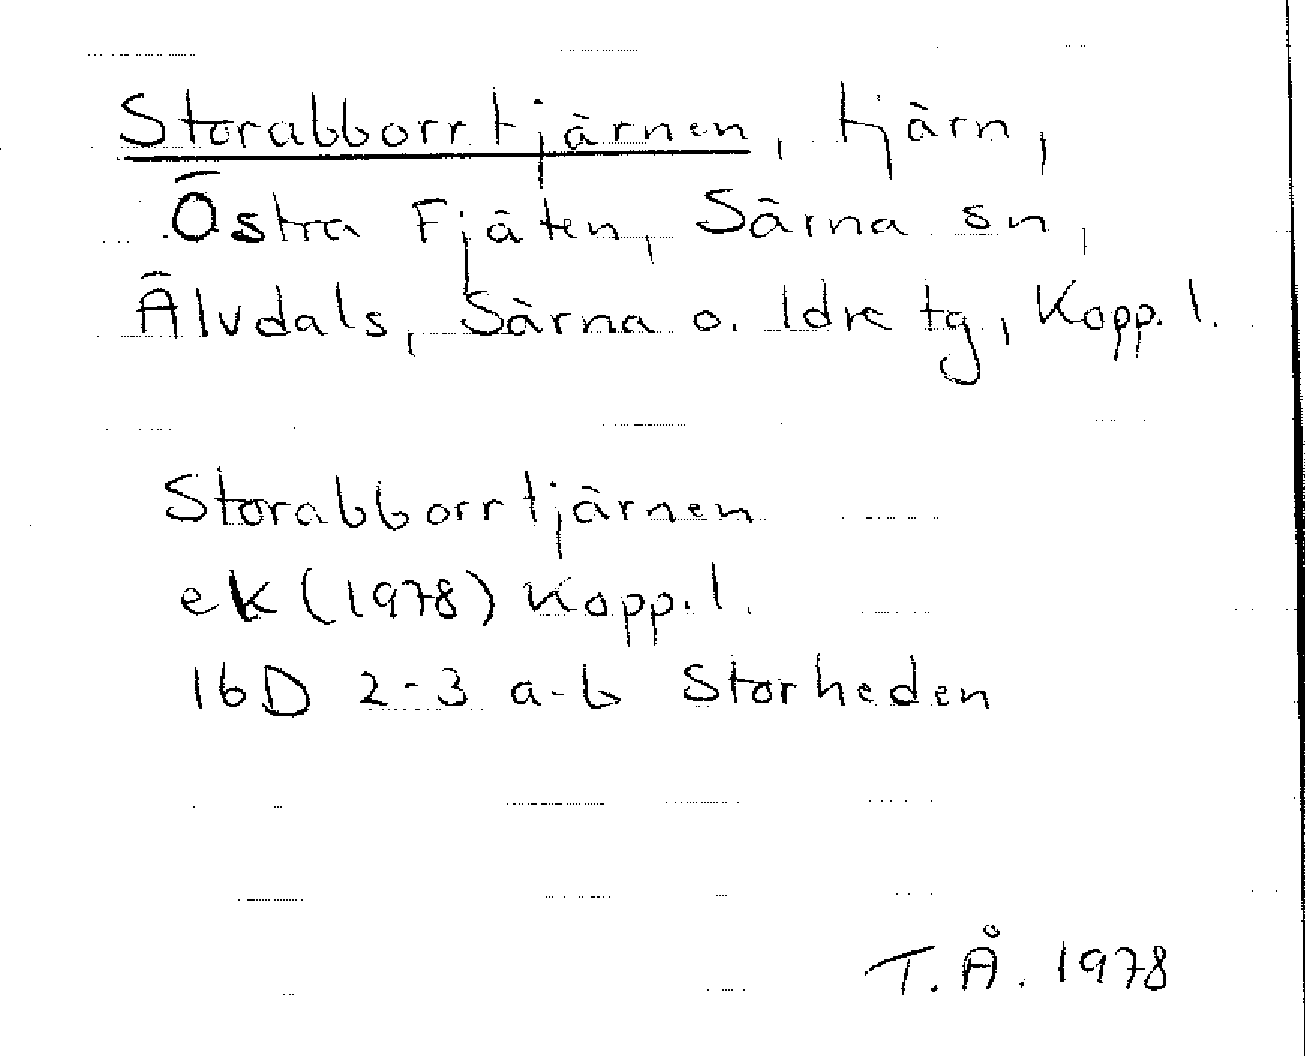 Storabborrtjärnen, tjärn,
Östra Fjäten, Särna sn,
Älvdals, Särna o. Idre tg, Kopp. l.
Storabborrtjärnen
ek (1978) Kopp. l.
16D 2-3 a-b Storheden
T. Å. 1978